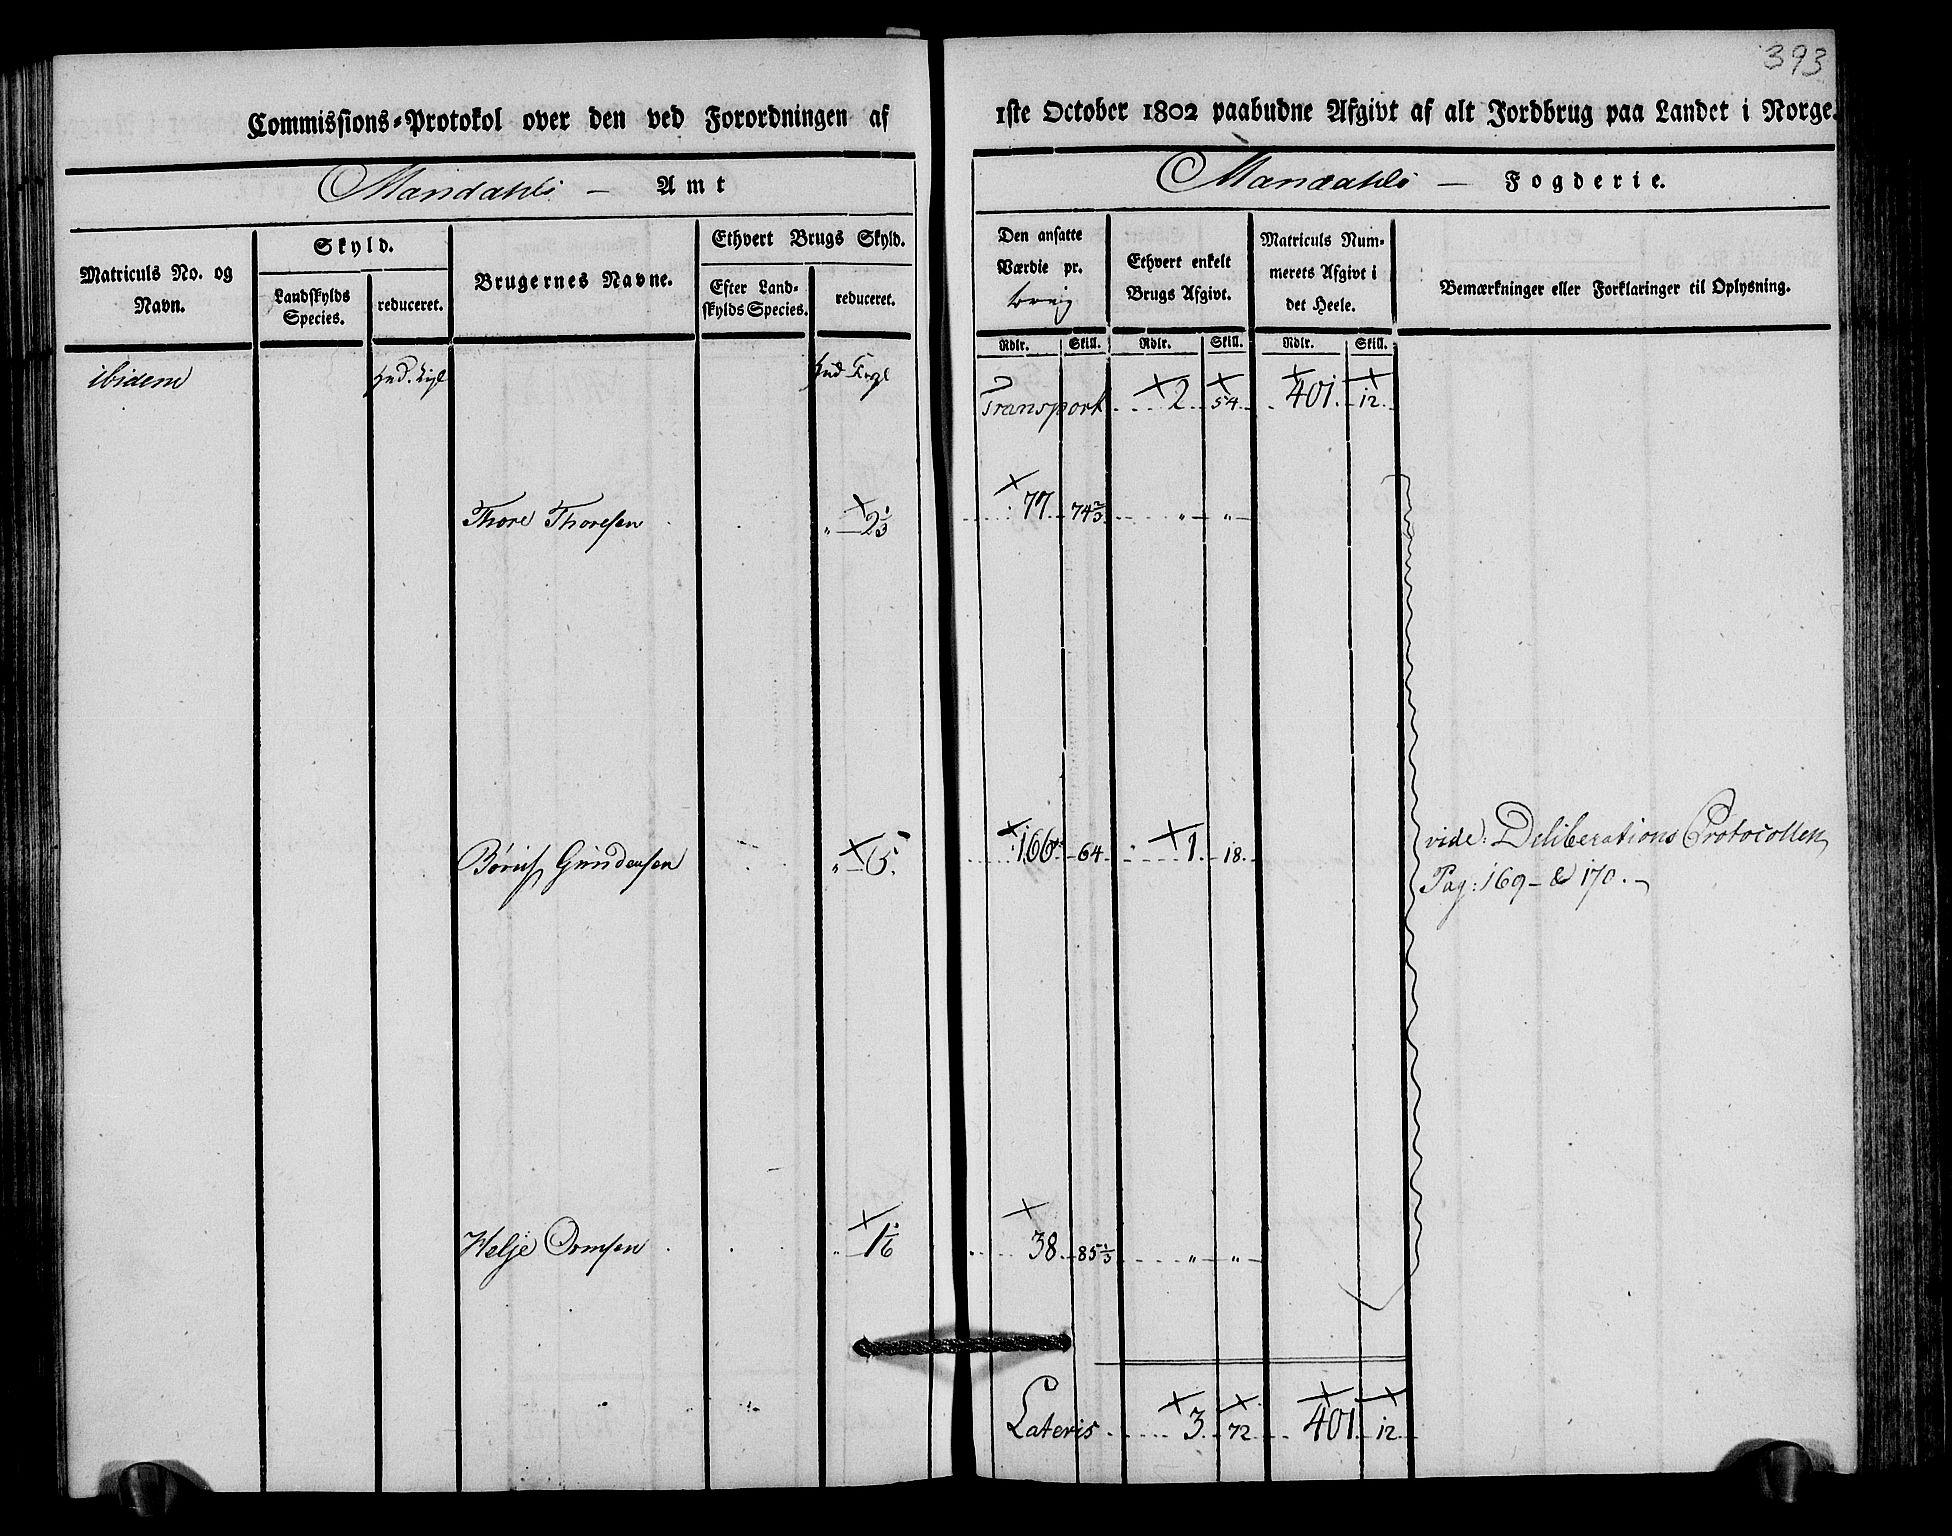 393
Commissions-Protokol over den ved Forordningen af 1ste October 1802 paabudne Afgivt af alt Jordbrug paa Landet i Norge.
Mandahls — Amt
Mandahls — Fogderie.
Matriculs No. og Navn.
Skyld.
Landskylds Species.
reduceret.
Brugernes Navne.
Ethvert Brugs Skyld.
Efter Landskylds Species.
reduceret.
Den ansatte Værdie pr.
Ethvert enkelt Brugs Afgivt.
Matriculs Nummerets Afgivt i det Heele.
Bemærkninger eller Forklaringer til Oplysning.
Rdlr. Skill. Rdlr. Skill. Rdlr. Skill.
ibidem
Transport 2 54 401 12
Thore Thoresen " 2 1/3 77 74 2/3 " "
Gundersen " 5 166 64 1 18
vide: Deliberations Protocollen
Pag: 169 – & 170. –
Helje Ormsen " 1 1/6 38 85 1/3 " "
Lateris 3 72 401 12